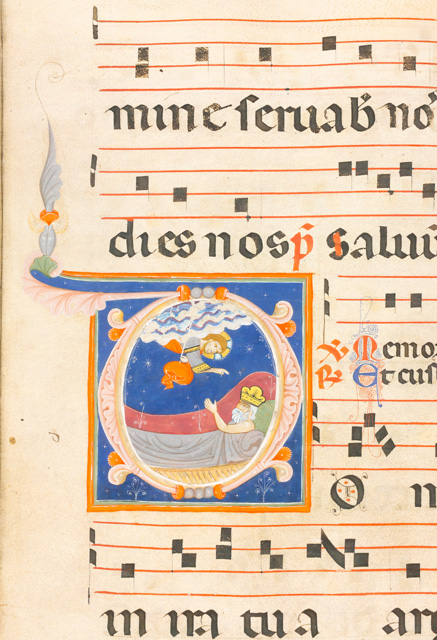 mine seruab̄ no
dies nos p̄ saluu
℣ Memor
℟ Et cus
O m
in ira tua ar